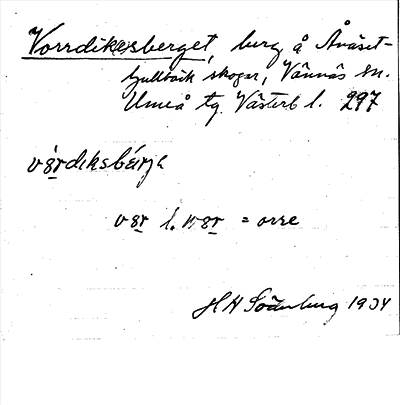 Vorrdik(e)sberget, berg å Åväset-
Gullbäck skogar, Vännäs sn.
Umeå tg. Västerb l. 297
vórdiksbérje
vor l. wor = orre
H H Söderberg 1934